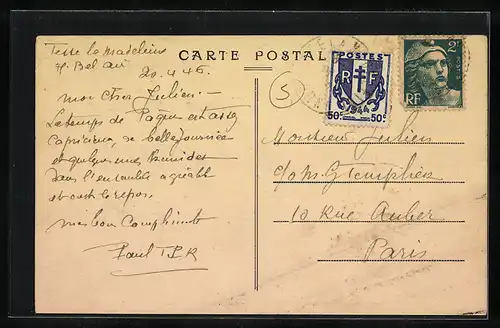 Tesse la Madeleine
H. Bel air
20.4.46.
CARTE POSTALE
POSTES
RF
1944
50c 50c
2F
RF
5
mon cher Julien -
Le temps de Paques est assez
Capricieux, de belle journée
et quelques unes humides
dans l'ensemble agréable
et c'est le repos.
mes bon Compliments
Paul
Monsieur Julien
c/o M. G Templier
10 Rue Auber
Paris